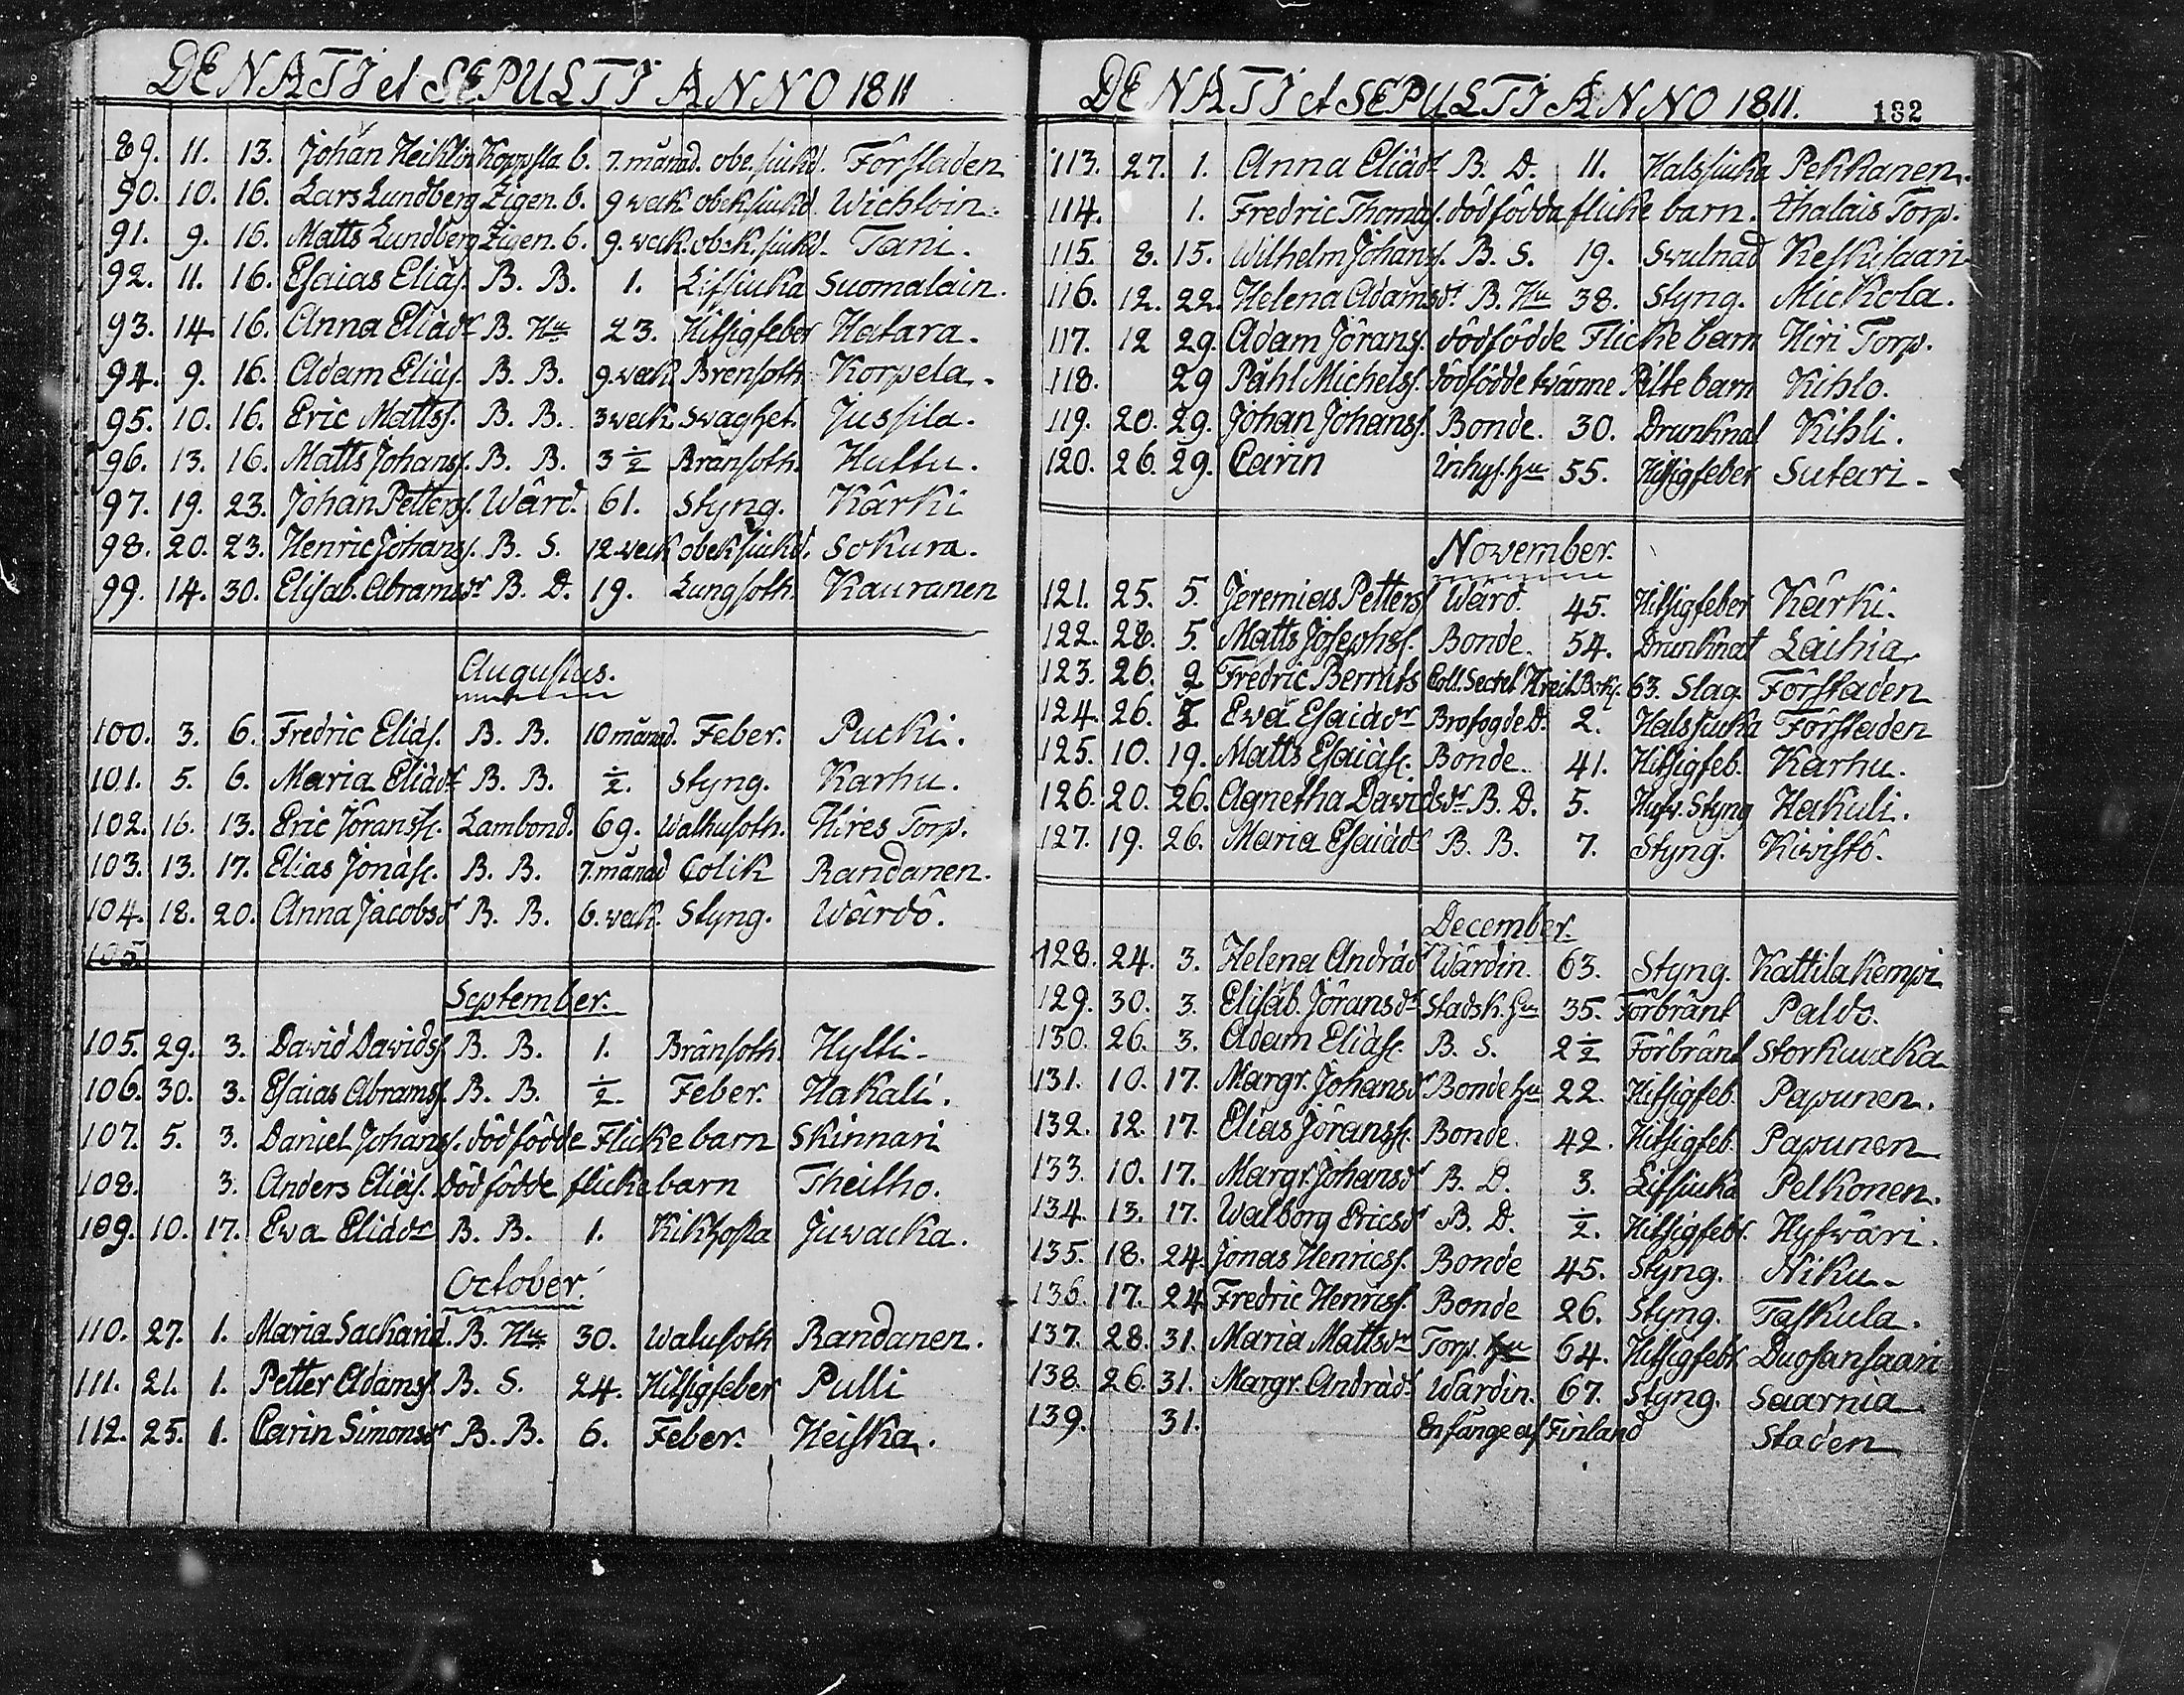 DENATI et SEPULTI ANNO 1811
89. 11. 13. Johan Heiklin Koppsla. b. 7. månad. obe. siukd. Förstaden
90. 10. 16. Lars Lundberg Zigen. b. 9 veck obek siukd. Wichloin.
91. 9. 16. Matts Lundberg Zigen. b. 9. veck. obek. siukd. Tani.
92. 11. 16. Esaias Elias. B. B. 1. Lifsiuka Suomalain.
93. 14 16. Anna Eliadr B. Hu 23. Hitsigfeber Hatara.
94. 9. 16. Adam Elias. B. B. 9. veck Brensoth Korpela.
95. 10. 16. Eric Mattss. B. B. 3 veck swaghet. Jussila.
96. 13. 16. Matts Johans. B. B. 3 1/2 Bränsoth. Huttu.
97. 19. 23. Johan Petters. Wärd. 61. Styng. Kärki
98. 20. 23. Henric Johans. B. S. 12 veck obek siukd. Sokura.
99. 14. 30. Elisab. Abramsdr B. D. 19. Lungsoth. Kauranen
Augustus.
100. 3. 6. Fredric Elias. B. B. 10 månad. Feber. Pucki.
101. 5. 6. Maria Eliadr B. B. 1/2. Styng. Karhu.
102. 16. 13. Eric Jöranss. Lambond. 69. Wathusoth. Hires Torp.
103. 13. 17. Elias Jonass. B. B. 7. månad Colik Randanen.
104. 18. 20. Anna Jacobsdr B. B. 6. veck. Styng. Wärdö.
105.
September.
105. 29. 3. David Davids. B. B. 1. Bränsoth. Hylli.
106. 30. 3. Esaias Abrams. B. B. 1/2. Feber. Hakali.
107. 5. 3. Daniel Johans. dödfödde Flickebarn Skinnari
108. 3. Anders Elias. Dödfödde flickebarn Theilho.
109. 10. 17. Eva Eliadr B. B. 1. Kikhosta Juvacka.
October.
110. 27. 1. Maria Sackarid. B. Hu 30. Walusoth Randanen.
111. 21. 1. Petter Adams. B. S. 24. Hitsigfeber Pulli
112. 25. 1. Carin Simonsdr B. B. 6. Feber. Heiska.
DENATI et SEPULTI ANNO 1811. 182
113. 27. 1. Anna Eliadr B. D. 11. Halssiuka Pekkanen.
114. 1. Fredric Thomas. dödfödda flicke barn. thalais Torp.
115. 8. 15. Wilhelm Johans. B. S. 19. Svulnad Keskisaari
116. 12. 22. Helena Adamsdr B. Hu 38. Styng. Mickola.
117. 12 29. Adam Jörans. dödfödde Flickebarn Hiri Torp.
118. 29 Påhl Michels. dödfödde tvänne Pilte barn Kihlo.
119. 20. 29. Johan Johanss. Bonde. 30. Drunknat Kihli.
120. 26. 29. Carin Inhys. hu 55. Hitsigfeber Sutari.
November.
121. 25. 5. Jeremias Petters Wärd. 45. Hitsigfeber Kärki.
122. 28. 5. Matts Josephss. Bonde. 54. Drunknat Laihia
123. 26. 9 Fredric Bernits Coll. Secret 63. Slag. Förstaden
124. 26. Eva Esaiadr Brofogde D. 2. Halssiuka Förstaden
125. 10. 19. Matts Esaiass. Bonde. 41. Hitsigfeb. Karhu.
126. 20. 26. Agnetha Davidsdr B. D. 5. Hufv. Styng Hakuli.
127. 19. 26. Maria Esaiadr B. B. 7. Styng. Kivistö.
December.
128. 24. 3. Helena Andradr Wärdin. 63. Styng. Kattilakempi
129. 30. 3. Elisab. Jöransdr Stadsk. hu 35. Förbränt Paldo.
130. 26. 3. Adam Eliass. B. S. 2 1/2 Förbränt Storkuucka
131. 10. 17. Margr. Johansdr Bonde hu 22. Hitsigfeb. Papunen.
132. 12. 17. Elias Jöranss. Bonde. 42. Hitsigfeb. Papunen
133. 10. 17. Margr. Johansdr B. D. 3. Lifsiuka Pelkonen.
134. 13. 17. Walborg Ericsdr B. D. 1/2. Hitsigfebr. Hyfväri.
135. 18. 24. Jonas Henricss. Bonde 45. Styng. Niku.
136. 17. 24 Fredric Henriss. Bonde 26. Styng. Taskula.
137. 28. 31. Maria Mattsdr Torp. hu 64. Hitsigfebr Duosansaari
138. 26. 31. Margr. Andradr Wärdin. 67. Styng. Saarnia
139. 31. En fånge af Finland Staden